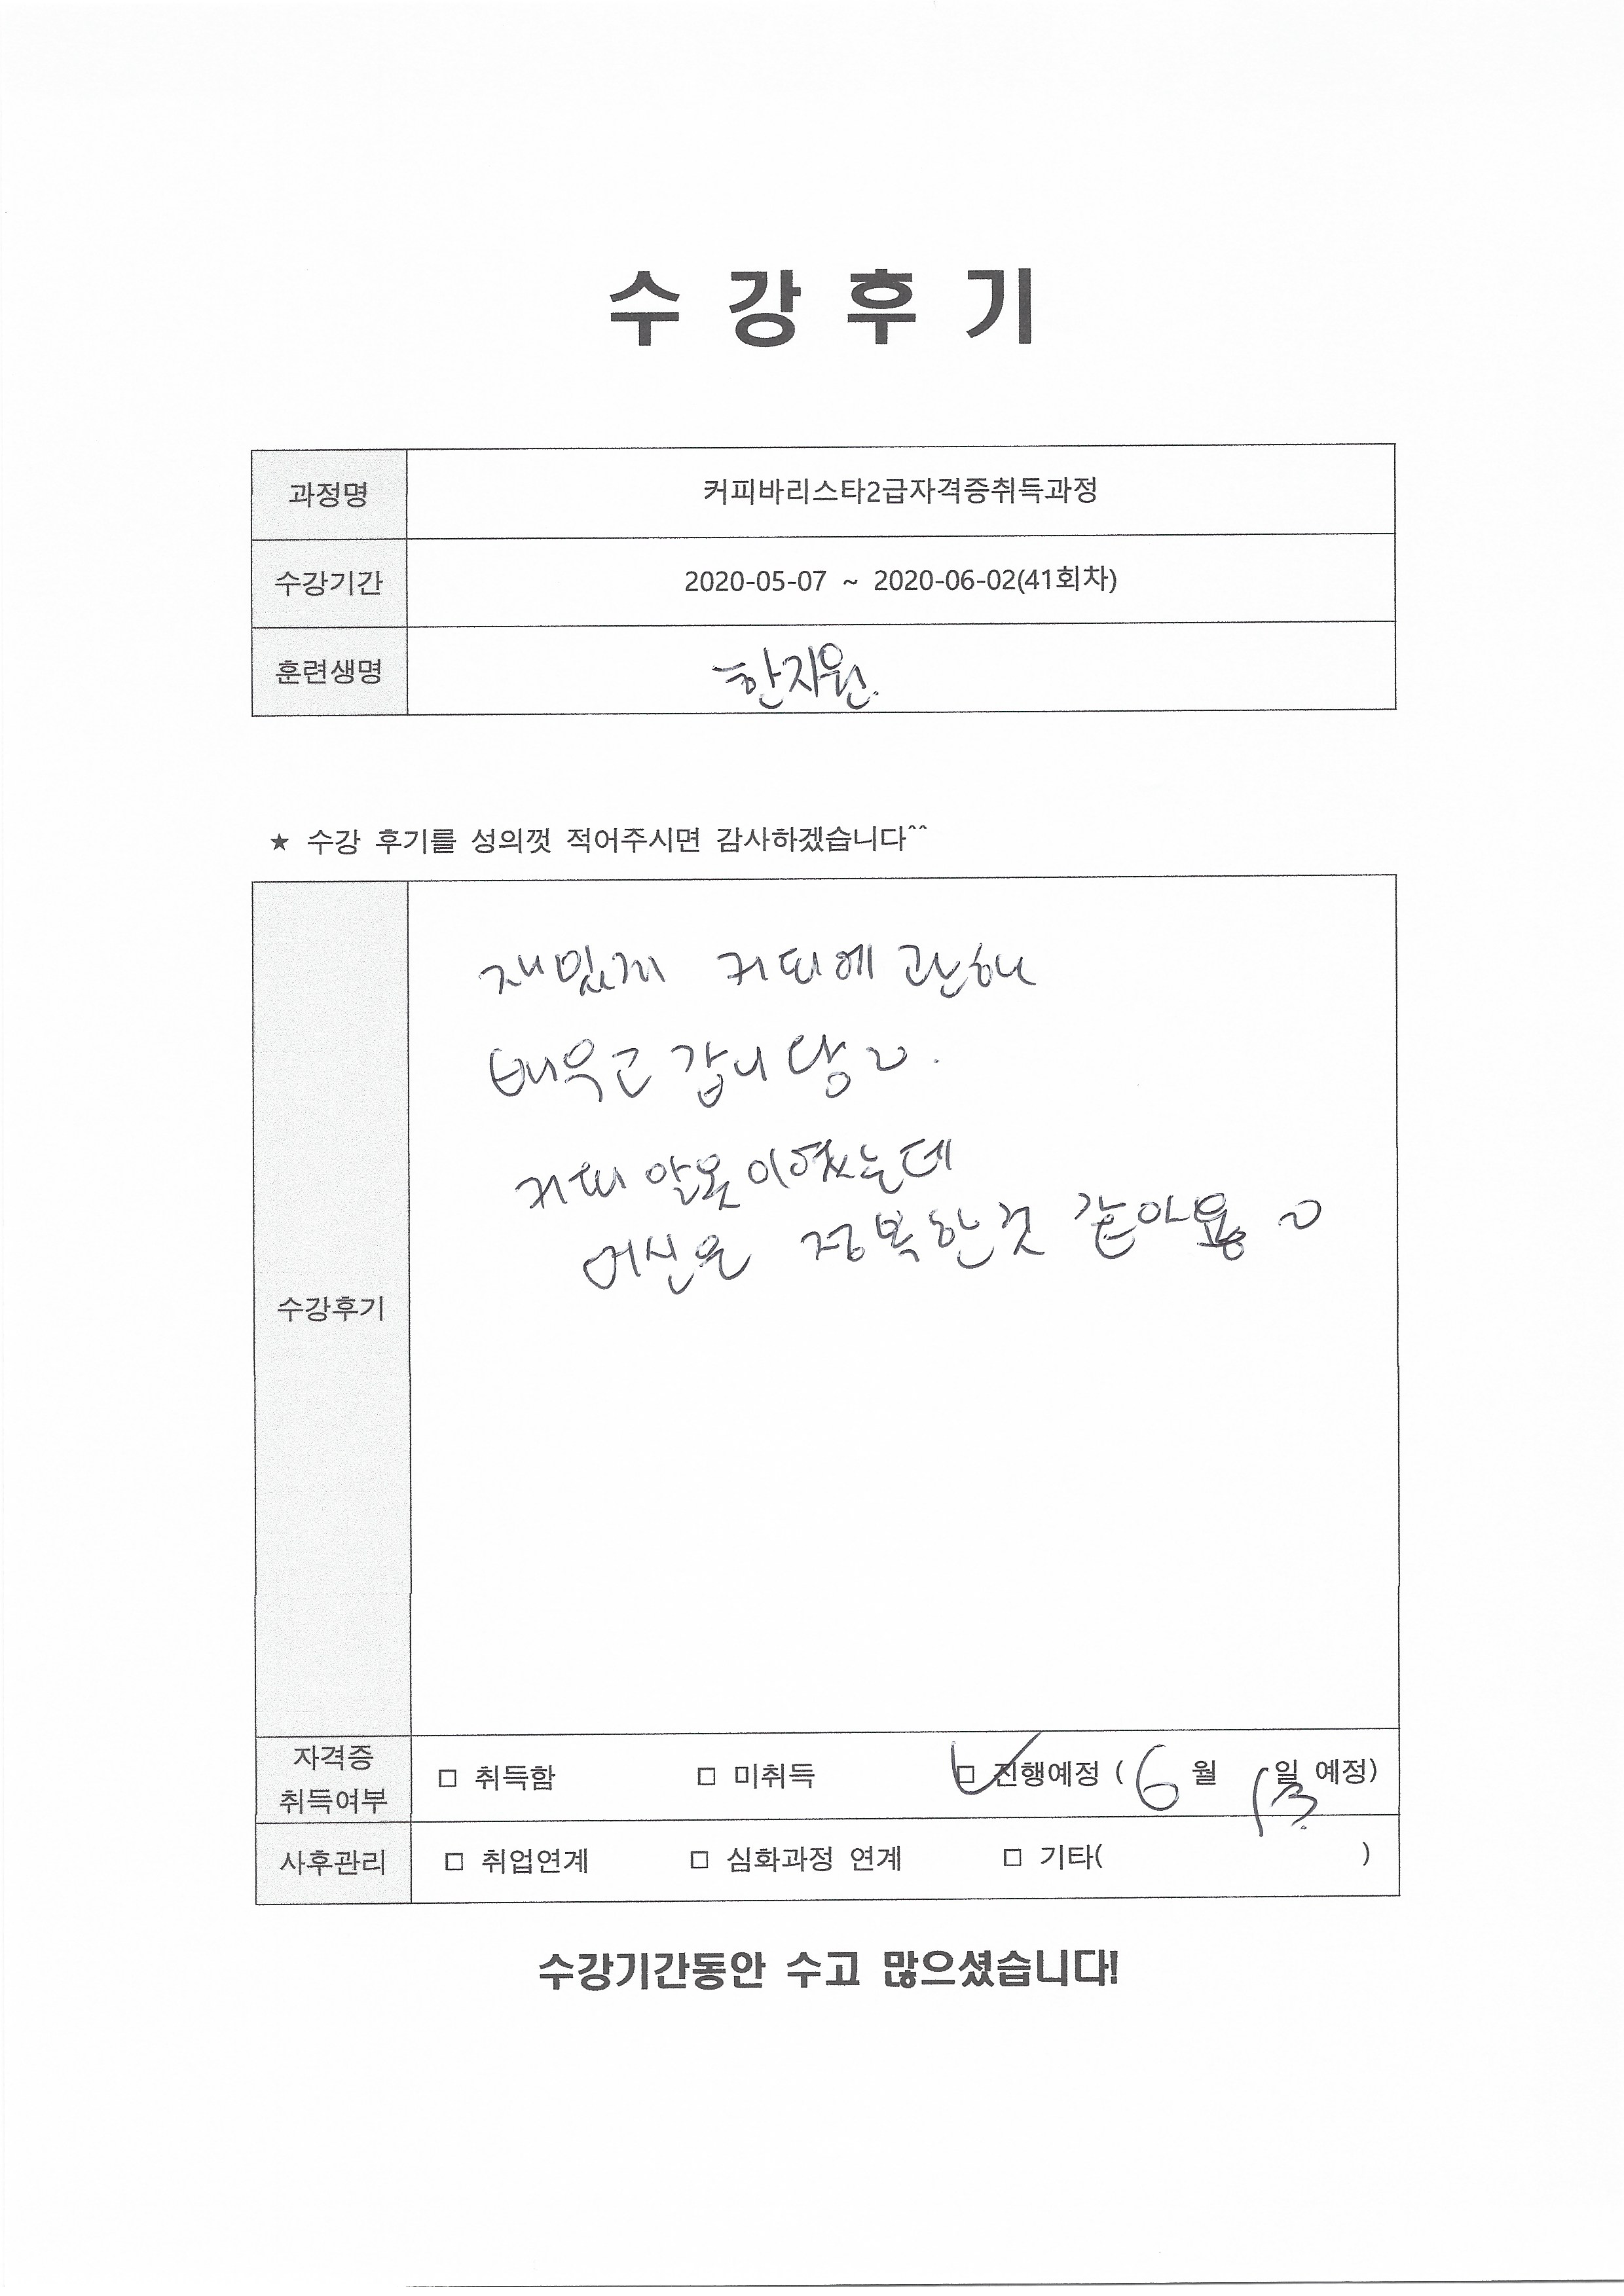 수 강 후 기
과정명 커피바리스타2급자격증취득과정
수강기간 2020-05-07 ~ 2020-06-02(41회차)
훈련생명 한지원.
★ 수강 후기를 성의껏 적어주시면 감사하겠습니다^^
수강후기
재밌게 커피에 관해
배우고 갑니당~.
커피 알못이였는데
머신은 정복한것 같아용 ~
자격증 취득여부 □ 취득함 □ 미취득 ☑ 진행예정 ( 6 월 13 일 예정)
사후관리 □ 취업연계 □ 심화과정 연계 □ 기타( )
수강기간동안 수고 많으셨습니다!